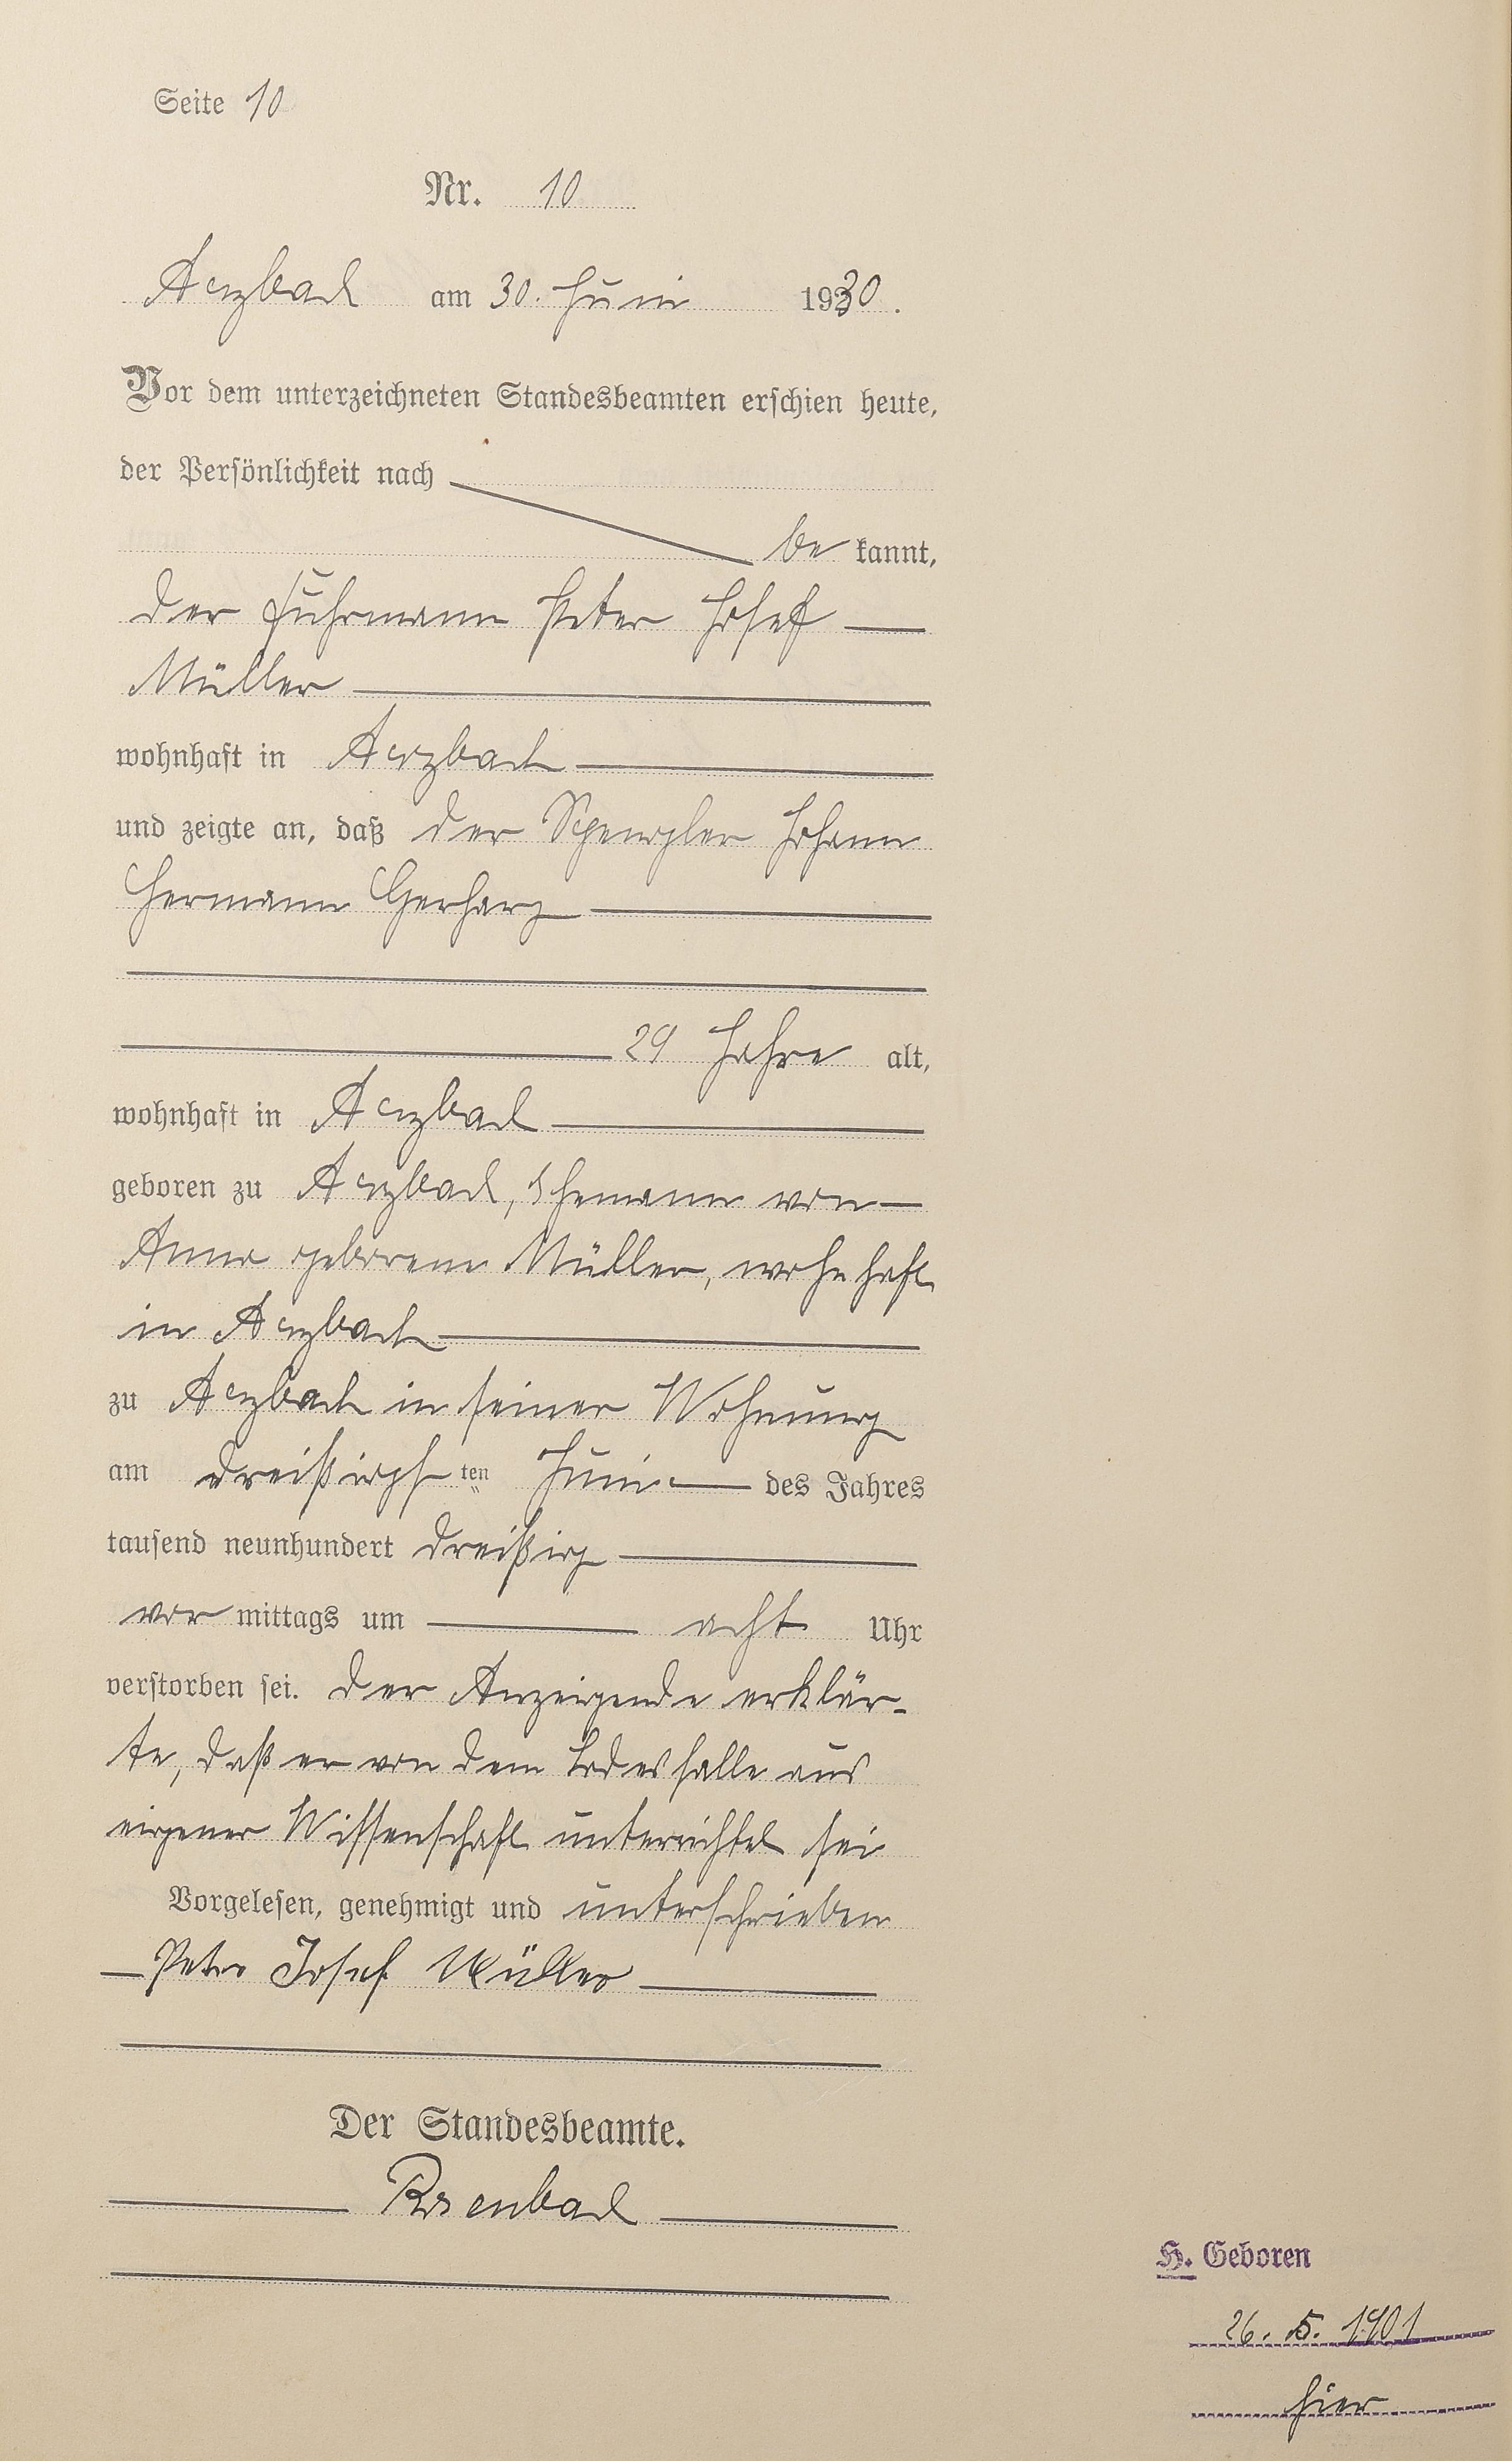 Seite 10
Nr. 10
Arzbach am 30. Juni 1930.
Vor dem unterzeichneten Standesbeamten erschien heute,
der Persönlichkeit nach
be kannt,
der Fuhrmann Peter Josef
Müller
wohnhaft in Arzbach
und zeigte an, daß der Spengler Johann
Hermann Gerharz
29 Jahre alt,
wohnhaft in Arzbach
geboren zu Arzbach, Ehemann von
Anna geborene Müller, wohnhaft
in Arzbach
zu Arzbach in seiner Wohnung
am dreißigsten Juni des Jahres
tausend neunhundert dreißig
vor mittags um acht Uhr
verstorben sei. Der Anzeigende erklär-
te, daß er von dem Todesfalle aus
eigener Wissenschaft unterrichtet sei
Vorgelesen, genehmigt und unterschrieben
Peter Josef Müller
Der Standesbeamte.
Rosenbach
H. Geboren
26. 5. 1901
hier